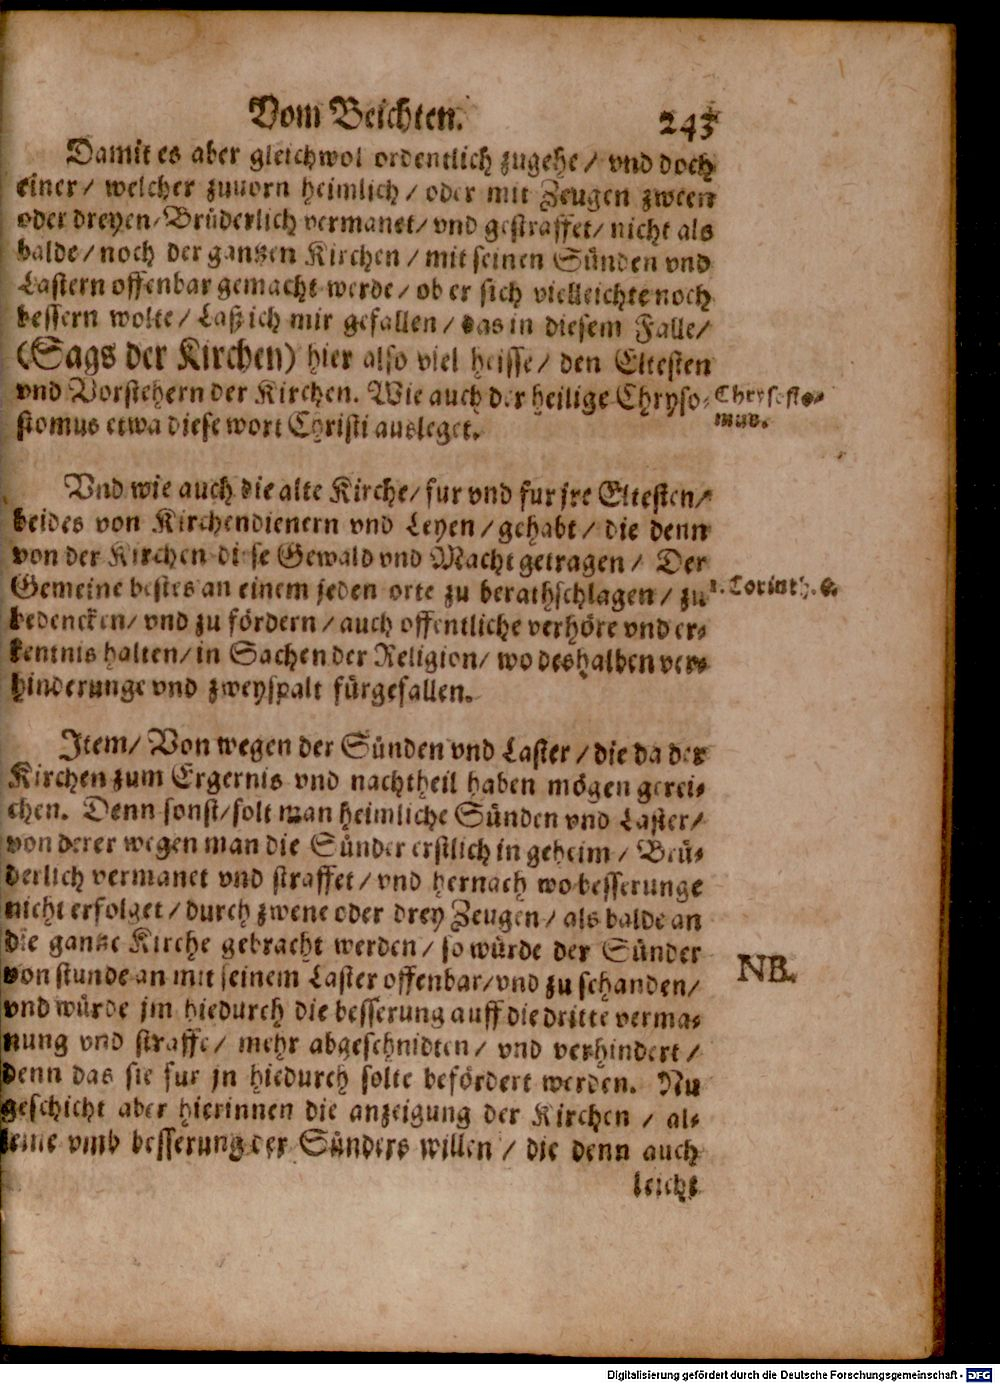 Vom Beichten. 243
Damit es aber gleichwol ordentlich zugehe / vnd doch
einer / welcher zuuorn heimlich / oder mit Zeugen zween
oder dreyen / Brüderlich vermanet / vnd gestraffet / nicht als
balde / noch der gantzen Kirchen / mit seinen Sünden vnd
Lastern offenbar gemacht werde / ob er sich vielleichte noch
bessern wolte / Laß ich mir gefallen / das in diesem Falle /
(Sags der Kirchen) hier also viel heisse / den Eltesten
vnd Vorstehern der Kirchen. Wie auch der heilige Chryso-
Chrysosto-
mus.
stomus etwa diese wort Christi ausleget.
Vnd wie auch die alte Kirche / fur vnd fur jre Eltesten /
beides von Kirchendienern vnd Leyen / gehabt / die denn
von der Kirchen diese Gewald vnd Macht getragen / Der
Gemeine bestes an einem jeden orte zu berathschlagen / zu
1. Corinth. 6.
bedencken / vnd zu fördern / auch offentliche verhöre vnd er-
kentnis halten / in Sachen der Religion / wo deshalben ver-
hinderunge vnd zweyspalt fürgefallen.
Item / Von wegen der Sünden vnd Laster / die da der
Kirchen zum Ergernis vnd nachtheil haben mögen gerei-
chen. Denn sonst / solt man heimliche Sünden vnd Laster /
von derer wegen man die Sünder erstlich in geheim / Brü-
derlich vermanet vnd straffet / vnd hernach wo besserunge
nicht erfolget / durch zwene oder drey Zeugen / als balde an
die gantze Kirche gebracht werden / so würde der Sünder
von stunde an mit seinem Laster offenbar / vnd zu schanden /
NB.
vnd würde jm hiedurch die besserung auff die dritte verma-
nung vnd straffe / mehr abgeschnidten / vnd verhindert /
denn das sie fur jn hiedurch solte befördert werden. Nu
geschicht aber hierinnen die anzeigung der Kirchen / al-
leine vmb besserung der Sünders willen / die denn auch
leicht
Digitalisierung gefördert durch die Deutsche Forschungsgemeinschaft - DFG